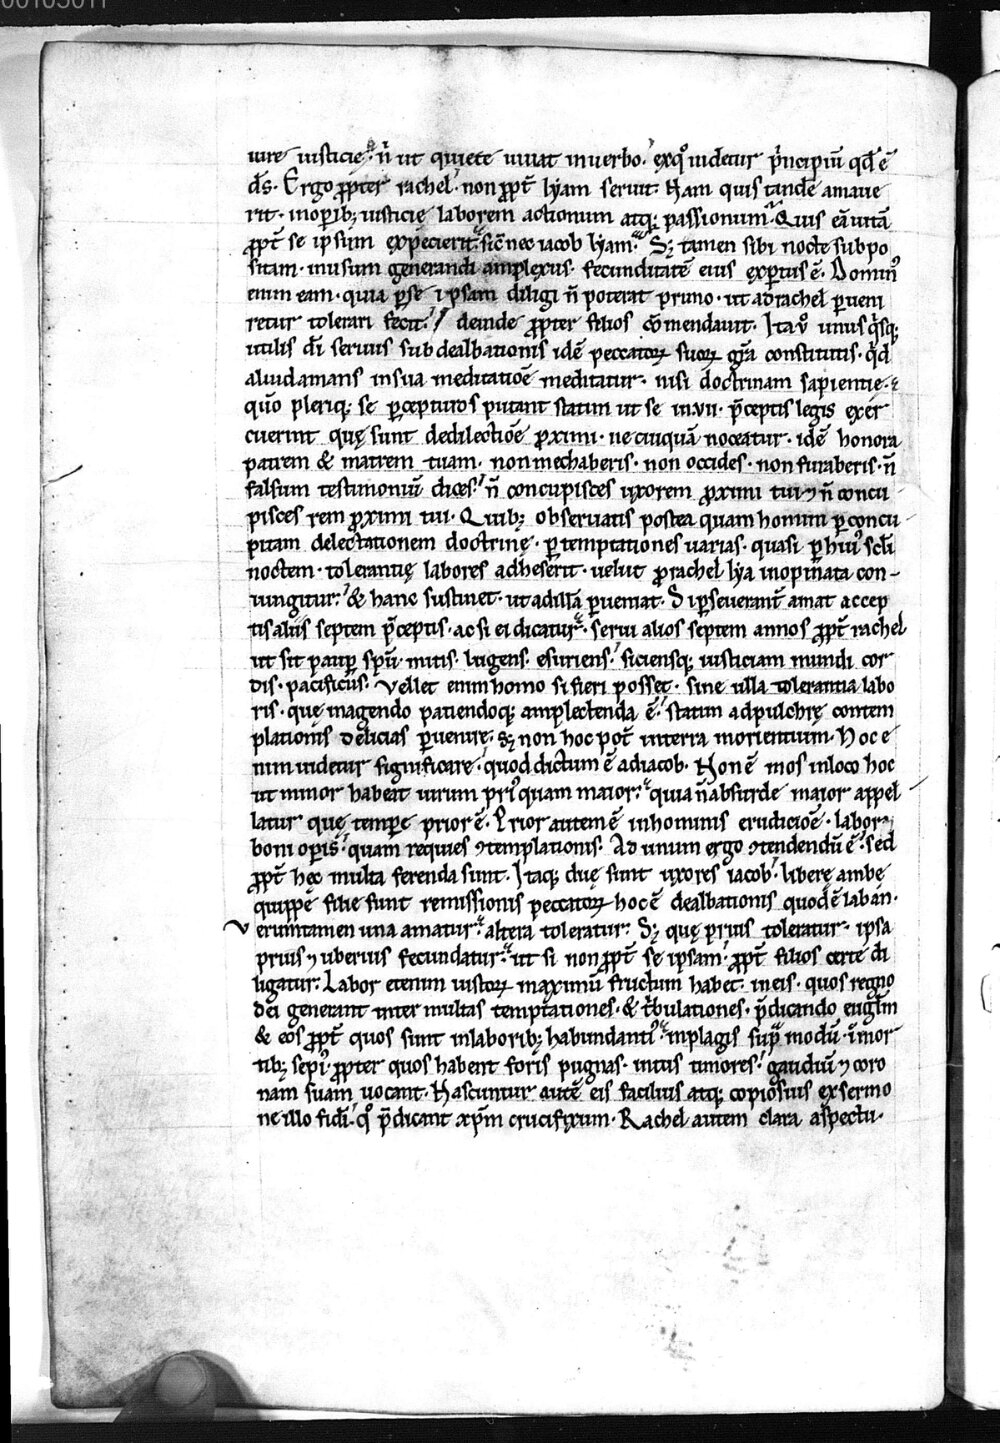 00105011
uire iusticie. n̄ ut quiete uiuat in uerbo. ex q̊ uidetur p̄ncipiū qd̄ ē
d̄s. Ergo ꝓpter rachel. non ꝓpt̄ lyam seruit. Nam quis tandē amaue
rit. in oꝑib; iusticię laborem actionum atq; passionum. Quis eā uitā
ꝓpt̄ se ipsum expecierit. sic̄ nec iacob lyam. S; tamen sibi nocte subpo
sitam. in usum generandi amplexus. fecunditatē eius exꝑtus ē. Domin᷒
enim eam. quia ꝑ se ipsam diligi n̄ poterat primo. ut ad rachel ꝑueni
retur tolerari fecit. deinde ꝓpter filios cōmendauit. Ita ů unusq̊sq;
utilis dī seruus sub dealbationis idē peccatoꝝ suoꝝ gr̄a constitutis. qⁱd
aliud amans in sua meditatiōe meditatur. nisi doctrinam sapientie.
quō pleriq; se ꝑcepturos putant statim ut se in .vii. p̄ceptis legis exer
cuerint quę sunt de dilectiōe ꝓximi. ne cuiquā noceatur. idē honora
patrem & matrem tuam. non mechaberis. non occides. non furaberis. n̄
falsum testimoniū dices. n̄ concupisces uxorem ꝓximi tui ⁊ n̄ concu
pisces rem ꝓximi tui. Quib; obseruatis postea quam homini ꝑ concu
pitam delectationem doctrinę. ꝑ temptationes uarias. quasi ꝑ hui᷒ sc̄li
noctem. tolerantię labores adheserit. uelut ꝓ rachel lya inopinata con-
iungitur. & hanc sustinet. ut ad illā ꝑueniat. Si ꝑseuerant̄ amat accep
tis aliis septem p̄ceptis. ac si ei dicatur. serui alios septem annos ꝓpt̄ rachel
ut sit pauꝑ spū. mitis. lugens. esuriens. siciensq; iusticiam mundi cor
dis. pacificus. Vellet enim homo si fieri posset. sine ulla tolerantia labo
ris. quę in agendo patiendoq; amplectenda ē. statim ad pulchrę contem
plationis delicias ꝑuenire. s; non hoc pot̄ in terra morientium. Hoc e
nim uidetur significare. quod dictum ē ad iacob. Non ē mos in loco hoc
ut minor habeat uirum pri᷒quam maior. quia n̄ absurde maior appel
latur quę tempꝑe prior ē. Prior autem ē in hominis erudiciōe. labor
boni oꝑis. quam requies ꝯtemplationis. Ad unum ergo ꝯtendendū ē. sed
ꝓpt̄ hec multa ferenda sunt. Itaq; duę sunt uxores iacob. liberę ambę
quippē filie sunt remissionis peccatoꝝ hoc ē dealbationis quod ē laban.
Veruntamen una amatur. altera toleratur. S; quę prius toleratur. ipsa
prius ⁊ uberius fecundatur. ut si non ꝓpt̄ se ipsam. ꝓpt̄ filios certe di
ligatur. Labor etenim iustoꝝ maximū fructum habet. in eis. quos regno
dei generant inter multas temptationes. & t̄bulationes. p̄dicando eugl̄m
& eos ꝓpt̄ quos sunt in laborib; habundanti᷒. in plagis sup̄ modū. in mor
tib; sepi᷒. ꝓpter quos habent foris pugnas. intus timores. gaudiū ⁊ coro
nam suam uocant. Nascuntur autē eis facilius atq; copiosius ex sermo
ne illo fidi. q̊ p̄dicant xp̄m crucifixum. Rachel autem clara aspectu.